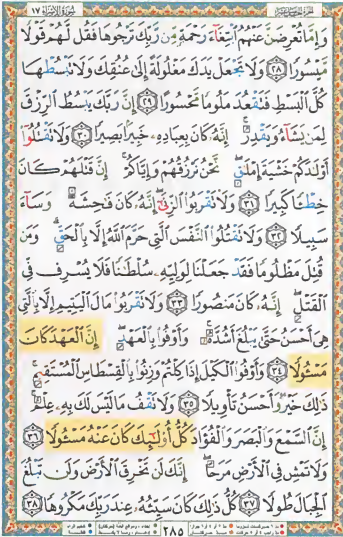 سُورَةُ الإِسْرَاءِ ١٧
وَإِمَّا تُعْرِضَنَّ عَنْهُمُ ابْتِغَاءَ رَحْمَةٍ مِّن رَّبِّكَ تَرْجُوهَا فَقُل لَّهُمْ قَوْلًا
مَّيْسُورًا ٢٨ وَلَا تَجْعَلْ يَدَكَ مَغْلُولَةً إِلَىٰ عُنُقِكَ وَلَا تَبْسُطْهَا
كُلَّ الْبَسْطِ فَتَقْعُدَ مَلُومًا مَّحْسُورًا ٢٩ إِنَّ رَبَّكَ يَبْسُطُ الرِّزْقَ
لِمَن يَشَاءُ وَيَقْدِرُ إِنَّهُ كَانَ بِعِبَادِهِ خَبِيرًا بَصِيرًا ٣٠ وَلَا تَقْتُلُوا
أَوْلَادَكُمْ خَشْيَةَ إِمْلَاقٍ نَّحْنُ نَرْزُقُهُمْ وَإِيَّاكُمْ إِنَّ قَتْلَهُمْ كَانَ
خِطْئًا كَبِيرًا ٣١ وَلَا تَقْرَبُوا الزِّنَىٰ إِنَّهُ كَانَ فَاحِشَةً وَسَاءَ
سَبِيلًا ٣٢ وَلَا تَقْتُلُوا النَّفْسَ الَّتِي حَرَّمَ اللَّهُ إِلَّا بِالْحَقِّ وَمَن
قُتِلَ مَظْلُومًا فَقَدْ جَعَلْنَا لِوَلِيِّهِ سُلْطَانًا فَلَا يُسْرِف فِّي
الْقَتْلِ إِنَّهُ كَانَ مَنصُورًا ٣٣ وَلَا تَقْرَبُوا مَالَ الْيَتِيمِ إِلَّا بِالَّتِي
هِيَ أَحْسَنُ حَتَّىٰ يَبْلُغَ أَشُدَّهُ وَأَوْفُوا بِالْعَهْدِ إِنَّ الْعَهْدَ كَانَ
مَسْئُولًا ٣٤ وَأَوْفُوا الْكَيْلَ إِذَا كِلْتُمْ وَزِنُوا بِالْقِسْطَاسِ الْمُسْتَقِيمِ
ذَٰلِكَ خَيْرٌ وَأَحْسَنُ تَأْوِيلًا ٣٥ وَلَا تَقْفُ مَا لَيْسَ لَكَ بِهِ عِلْمٌ
إِنَّ السَّمْعَ وَالْبَصَرَ وَالْفُؤَادَ كُلُّ أُولَٰئِكَ كَانَ عَنْهُ مَسْئُولًا ٣٦
وَلَا تَمْشِ فِي الْأَرْضِ مَرَحًا إِنَّكَ لَن تَخْرِقَ الْأَرْضَ وَلَن تَبْلُغَ
الْجِبَالَ طُولًا ٣٧ كُلُّ ذَٰلِكَ كَانَ سَيِّئُهُ عِندَ رَبِّكَ مَكْرُوهًا ٣٨
٢٨٥